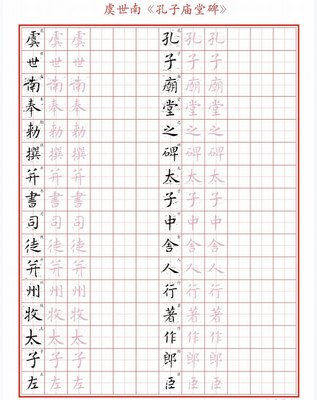 虞世南《孔子庙堂碑》
孔子廟堂之碑太子中舍人行著作郎臣
孔子廟堂之碑太子中舍人行著作郎臣
孔子廟堂之碑太子中舍人行著作郎臣
虞世南奉勅撰并書司徒并州牧太子左
虞世南奉勅撰并書司徒并州牧太子左
虞世南奉勅撰并書司徒并州牧太子左